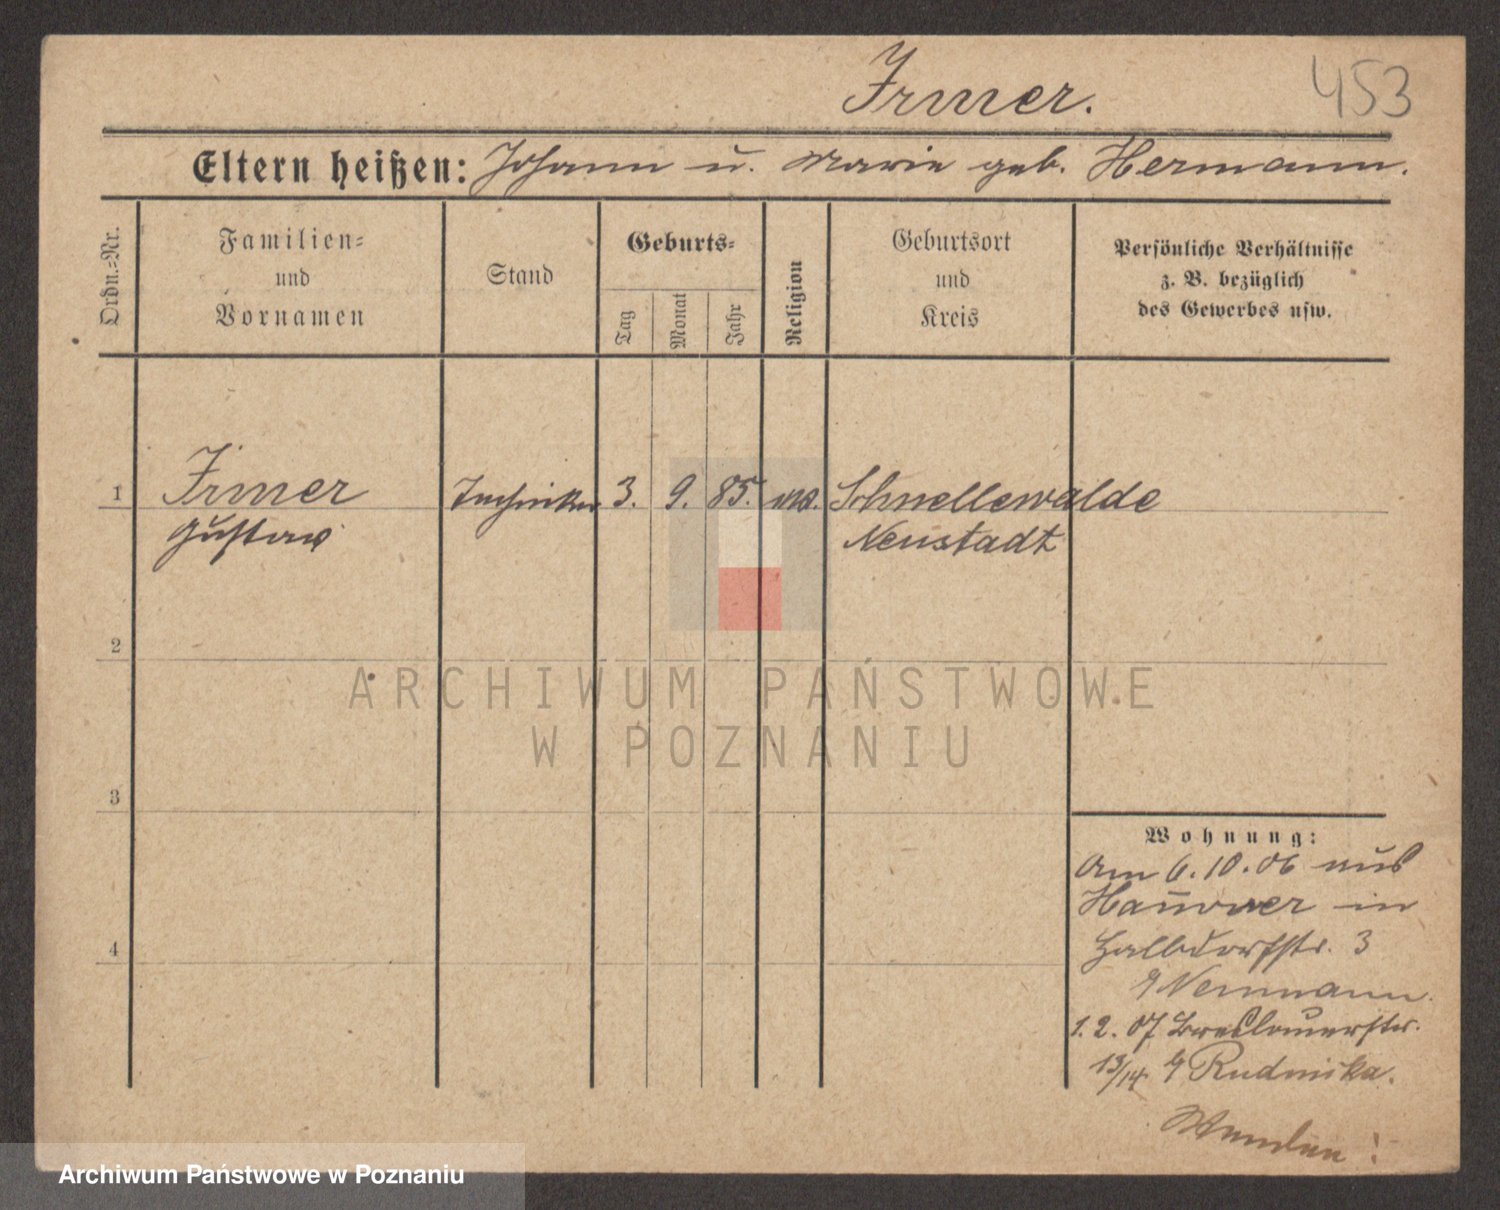 Irmer.
453
Eltern heißen: Johann u. Marie geb. Hermann.
Ordn.=Nr.
Familien=
und
Vornamen
Stand
Geburts=
Tag
Monat
Jahr
Religion
Geburtsort
und
Kreis
Persönliche Verhältnisse
z. B. bezüglich
des Gewerbes usw.
1 Irmer Techniker 3. 9. 85. Schnellewalde
Gustav Neustadt
2
3
4
Wohnung:
Am 6.10.06 aus
Hannover in
Halbdorfstr. 3
Neumann.
1. 2. 07 Breslauerstr.
13/14 Rudnika.
ARCHIWUM PAŃSTWOWE
W POZNANIU
Archiwum Państwowe w Poznaniu